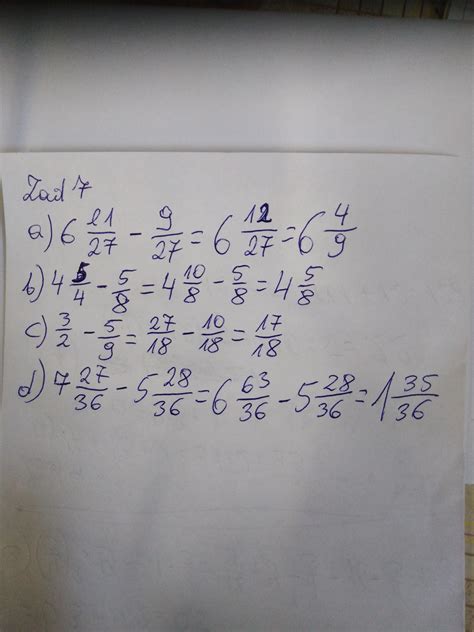 Zad 7
a) 6 21/27 - 9/27 = 6 12/27 = 6 4/9
b) 4 5/4 - 5/8 = 4 10/8 - 5/8 = 4 5/8
c) 3/2 - 5/9 = 27/18 - 10/18 = 17/18
d) 7 27/36 - 5 28/36 = 6 63/36 - 5 28/36 = 1 35/36